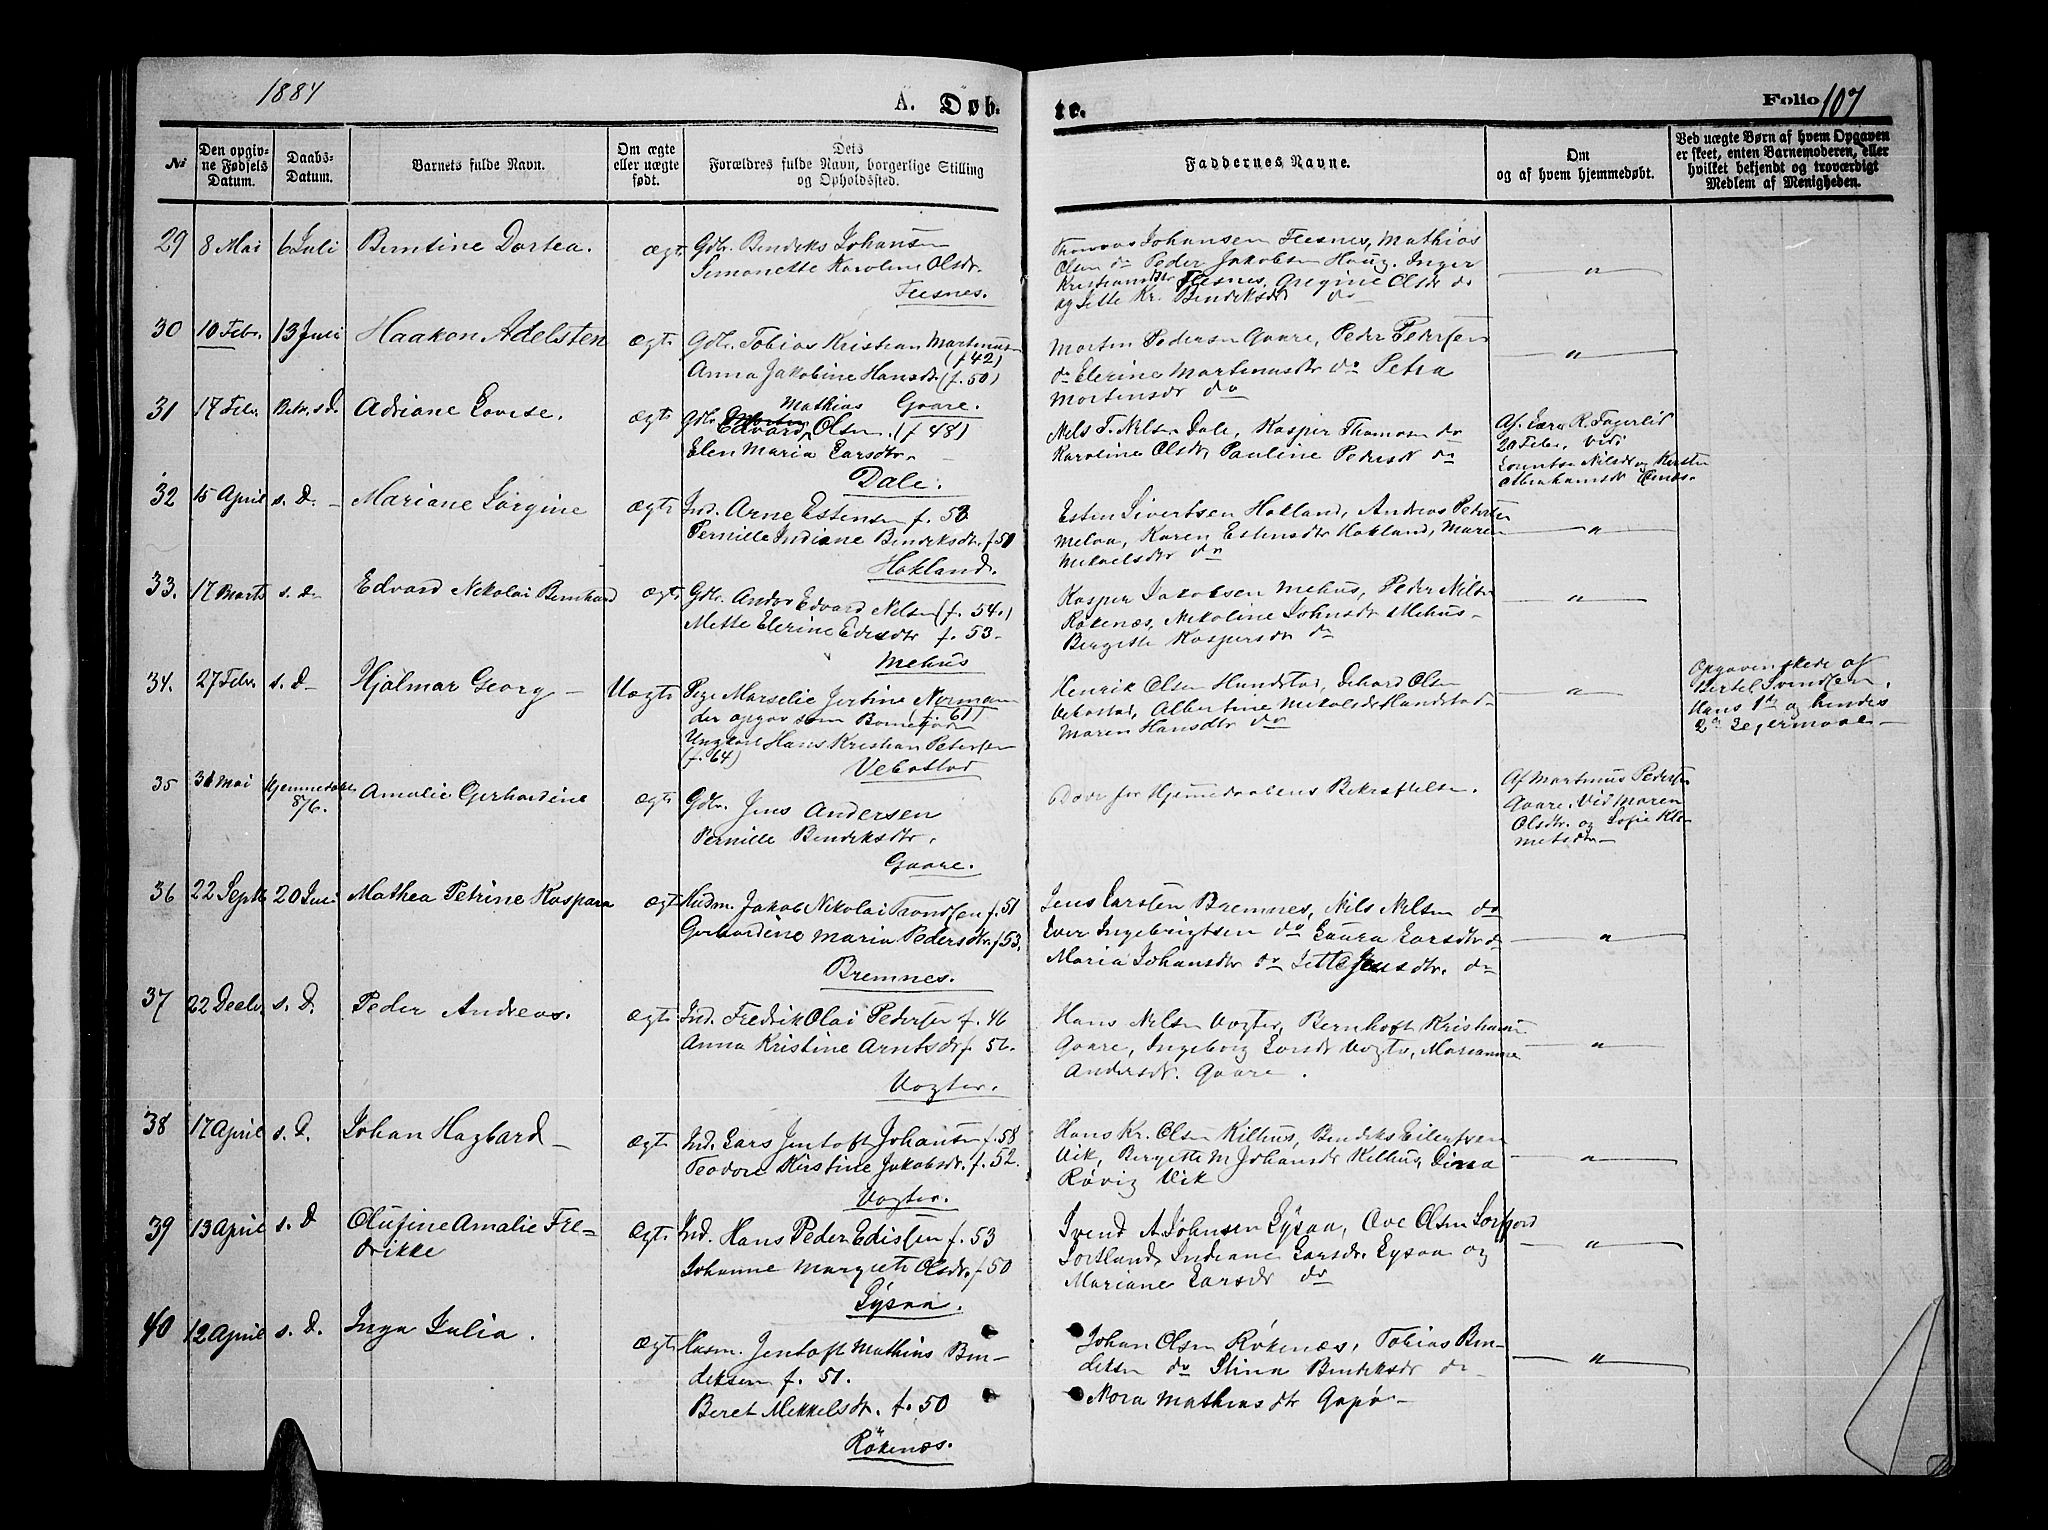 1884
A. Døb-
te.
Folio 107
No
Den opgiv-
ne Fødsels
Datum.
Daabs-
Datum.
Barnets fulde Navn.
Om ægte
eller uægte
født.
Dets
Forældres fulde Navn, borgerlige Stilling
og Opholdssted.
Faddernes Navne.
Om
og af hvem hjemmedøbt.
Ved uægte Børn af hvem Opgaven
er skeet, enten Barnemoderen, eller
hvilket bekjendt og troværdigt
Medlem af Menigheden.
29 8 Mai 6 Juli Berntine Dortea. ægt. Gdbr. Bendeks Johansen
Simonette Karoline Olsdtr.
Flesnes.
Thomas Johansen Flesnes, Mathias
Olsen do Peder Jakobsen Haug. Inger
Kristiansdtr Flesnes, Gregine Olsdtr do
og Jette Kr. Bendeksdtr do
30 10 Febr. 13 Juli Haakon Adelsten ægt. Gdbr. Tobias Kristian Martinusen
(f 42)
Anna Jakobine Hansdtr. (f. 50)
Gaare.
Morten Pedersen Gaare, Peder Pedersen
do Elerine Martinusdtr do Petra
Mortensdtr do
31 17 Febr. Bekr. s.D. Adriane Lovise. ægt. Gdbr. Edvard Mathias Olsen. (f 48)
Elen Maria Larsdtr.
Dale.
Nels T. Nelsen Dale, Kasper Thomasen do
Karoline Olsdtr, Pauline Pedersdtr do
Af Lærer R. Fagerlid
20 Febr. Vid:
Lorentse Nilsdtr og Kirsten
Abrahamsdtr
32 15 April s. D. Mariane Jørgine ægt. Ind. Arne Estensen f. 53
Pernille Indiane Bendeksdtr. f 50
Hokland.
Esten Sivertsen Hokland, Andreas Petersen
Melaa, Karen Estensdtr Hokland, Maren
Mikaelsdtr do
33. 17 Marts s. D. Edvard Nekolai Bernhard ægt. Gdbr. Andor Edvard Nelsen (f. 54.)
Mette Elerine Edisdtr f. 53.
Mehus
Kasper Jakobsen Mehus, Peder Nilsen
Røkenæs, Nikoline Johnsdtr Mehus
Bergitte Kaspersdtr do
34. 27 Febr. s. D. Hjalmar Georg Uægt. Pige Marselie Jertine Norman
(f 61)
der opgav som Barnefader
Ungkarl Hans Kristian Petersen
(f. 64)
Vebostad
Henrik Olsen Hundstad, Dehard Olsen
Vebostad, Albertine Mikalsdtr Hundstad
Maren Hansdtr do
Opgaven skede af
Bertel Svendsen.
Hans 1ste og hendes
2det Leiermaal
35 31 Mai Hjemmedøbt
8/6. Amalie Gerhardine ægt. Gdbr. Jens Andersen
Pernille Bendeksdtr,
Gaare.
Døde før Hjemmedaabens Bekræftelse.
Af Martinus Pedersen
Gaare. Vid Maren
Olsdtr. og Sofie Kle-
metsdtr
36 22 Septb. 20 Juli Mathea Petrine Kaspara ægt. Husm. Jakob Nikolai Trondsen f. 51
Gerhardine Maria Pedersdtr. f 53.
Bremnes.
Jens Larsen Bremnes, Nils Nelsen do
Ever Ingebrigtsen do Laura Larsdtr do
Maria Johansdtr do Jette Jensdtr. do
37 22 Decbr. s. D. Peder Andreas. ægt. Ind. Fredrik Olai Pedersen f. 46
Anna Kristine Arntsdtr f. 56.
Vogter.
Hans Nelsen Vogter, Bernhoft Kristiansen
Gaare, Ingeborg Larsdtr Vogter, Marianne
Andersdtr. Gaare.
38 17 April s. D. Johan Hagbard ægt. Ind. Lars Jentoft Johansen f. 58
Teodore Kirstine Jakobsdtr. f. 52.
Vogter.
Hans Kr. Olsen Kilhus, Bendeks Eilertsen
Vik, Bergitte M Johansdtr Kilhus, Dina
Røvig Vik
39 13 April s. D Olufine Amalie Fre-
drikke ægt. Ind. Hans Peder Edissen f. 53
Johanne Margrete Olsdtr. f 50
Lysaa.
Svend A. Johnsen Lysaa, Ove Olsen Sørfjord
Sortland, Indiane Larsdtr. Lysaa og
Mariane Larsdtr do
40 12 April s. D. Inga Julia. ægt. Husm. Jentoft Mathias Ben-
deksen f. 51.
Beret Mekkelsdtr. f. 50
Røkenæs.
Johan Olsen Røkenæs, Tobias Ben-
deksen do Stina Bendeksdtr do
Nora Mathiasdtr Gapø